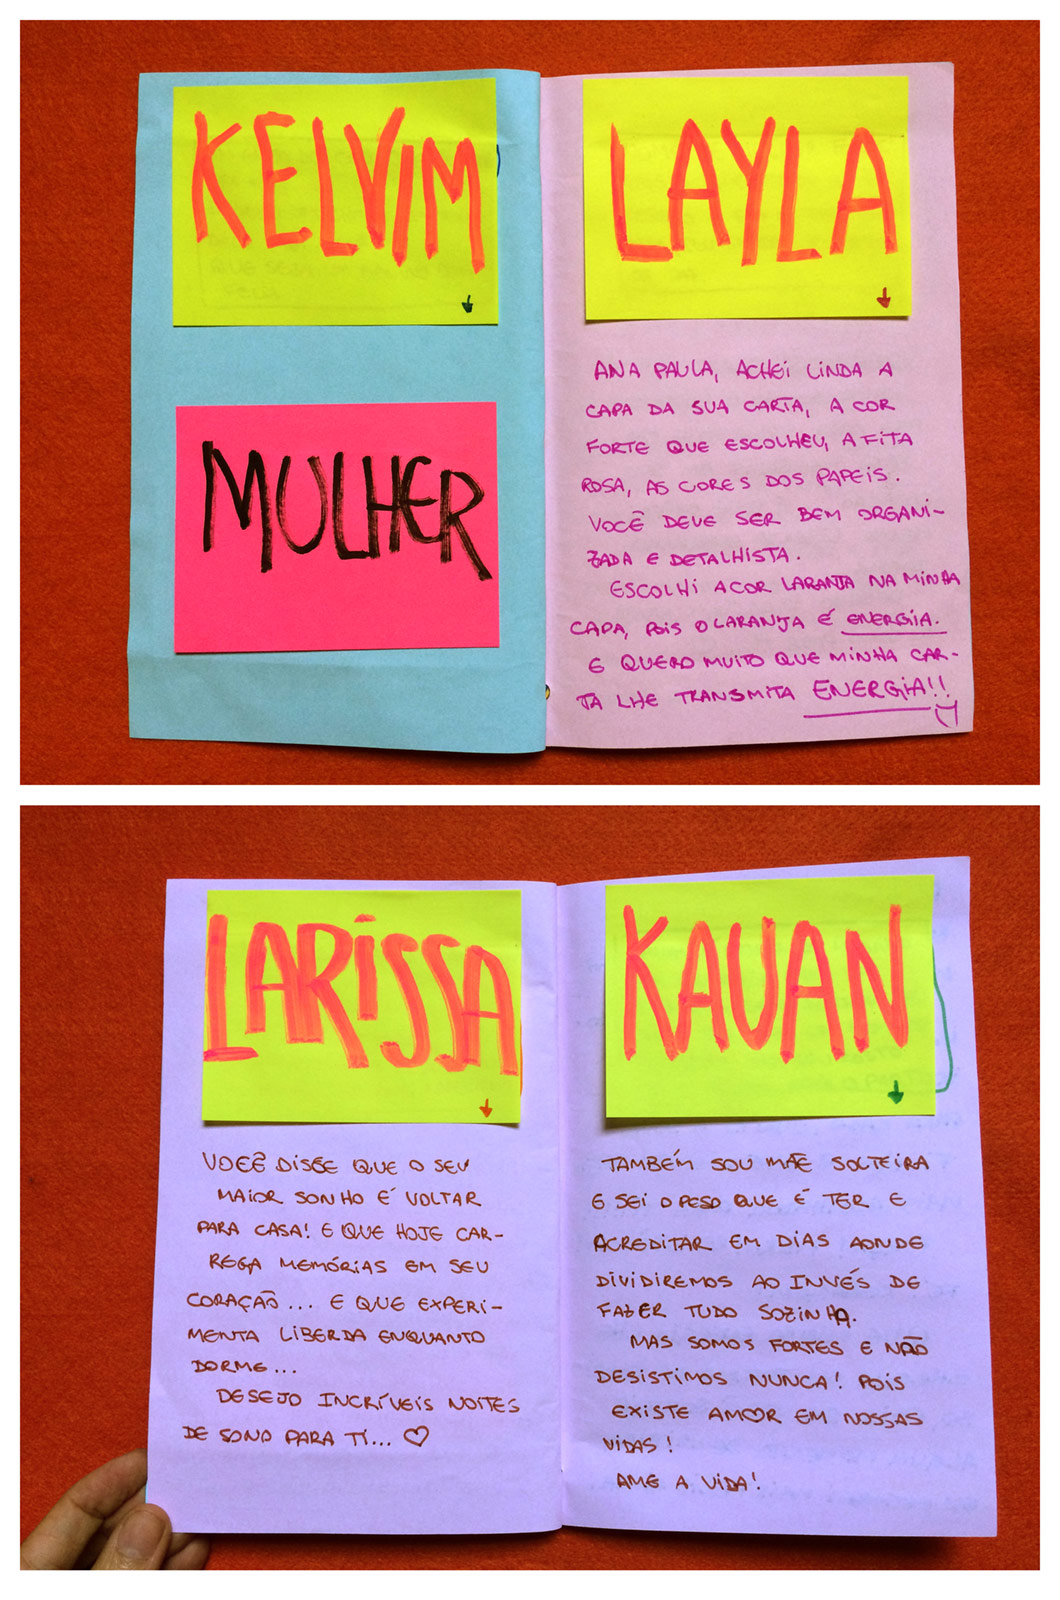 KELVIM
MULHER
LAYLA
ANA PAULA, ACHEI LINDA A
CAPA DA SUA CARTA, A COR
FORTE QUE ESCOLHEU, A FITA
ROSA, AS CORES DOS PAPEIS.
VOCÊ DEVE SER BEM ORGANI-
ZADA E DETALHISTA.
ESCOLHI A COR LARANJA NA MINHA
CAPA, POIS O LARANJA É ENERGIA.
E QUERO MUITO QUE MINHA CAR-
TA LHE TRANSMITA ENERGIA!!
LARISSA
VOCÊ DISSE QUE O SEU
MAIOR SONHO É VOLTAR
PARA CASA! E QUE HOJE CAR-
REGA MEMÓRIAS EM SEU
CORAÇÃO... E QUE EXPERI-
MENTA LIBERDA ENQUANTO
DORME...
DESEJO INCRÍVEIS NOITES
DE SONO PARA TI... ♡
KAUAN
TAMBÉM SOU MÃE SOLTEIRA
E SEI O PESO QUE É TER E
ACREDITAR EM DIAS AONDE
DIVIDIREMOS AO INVÉS DE
FAZER TUDO SOZINHA.
MAS SOMOS FORTES E NÃO
DESISTIMOS NUNCA! POIS
EXISTE AMOR EM NOSSAS
VIDAS!
AME A VIDA!